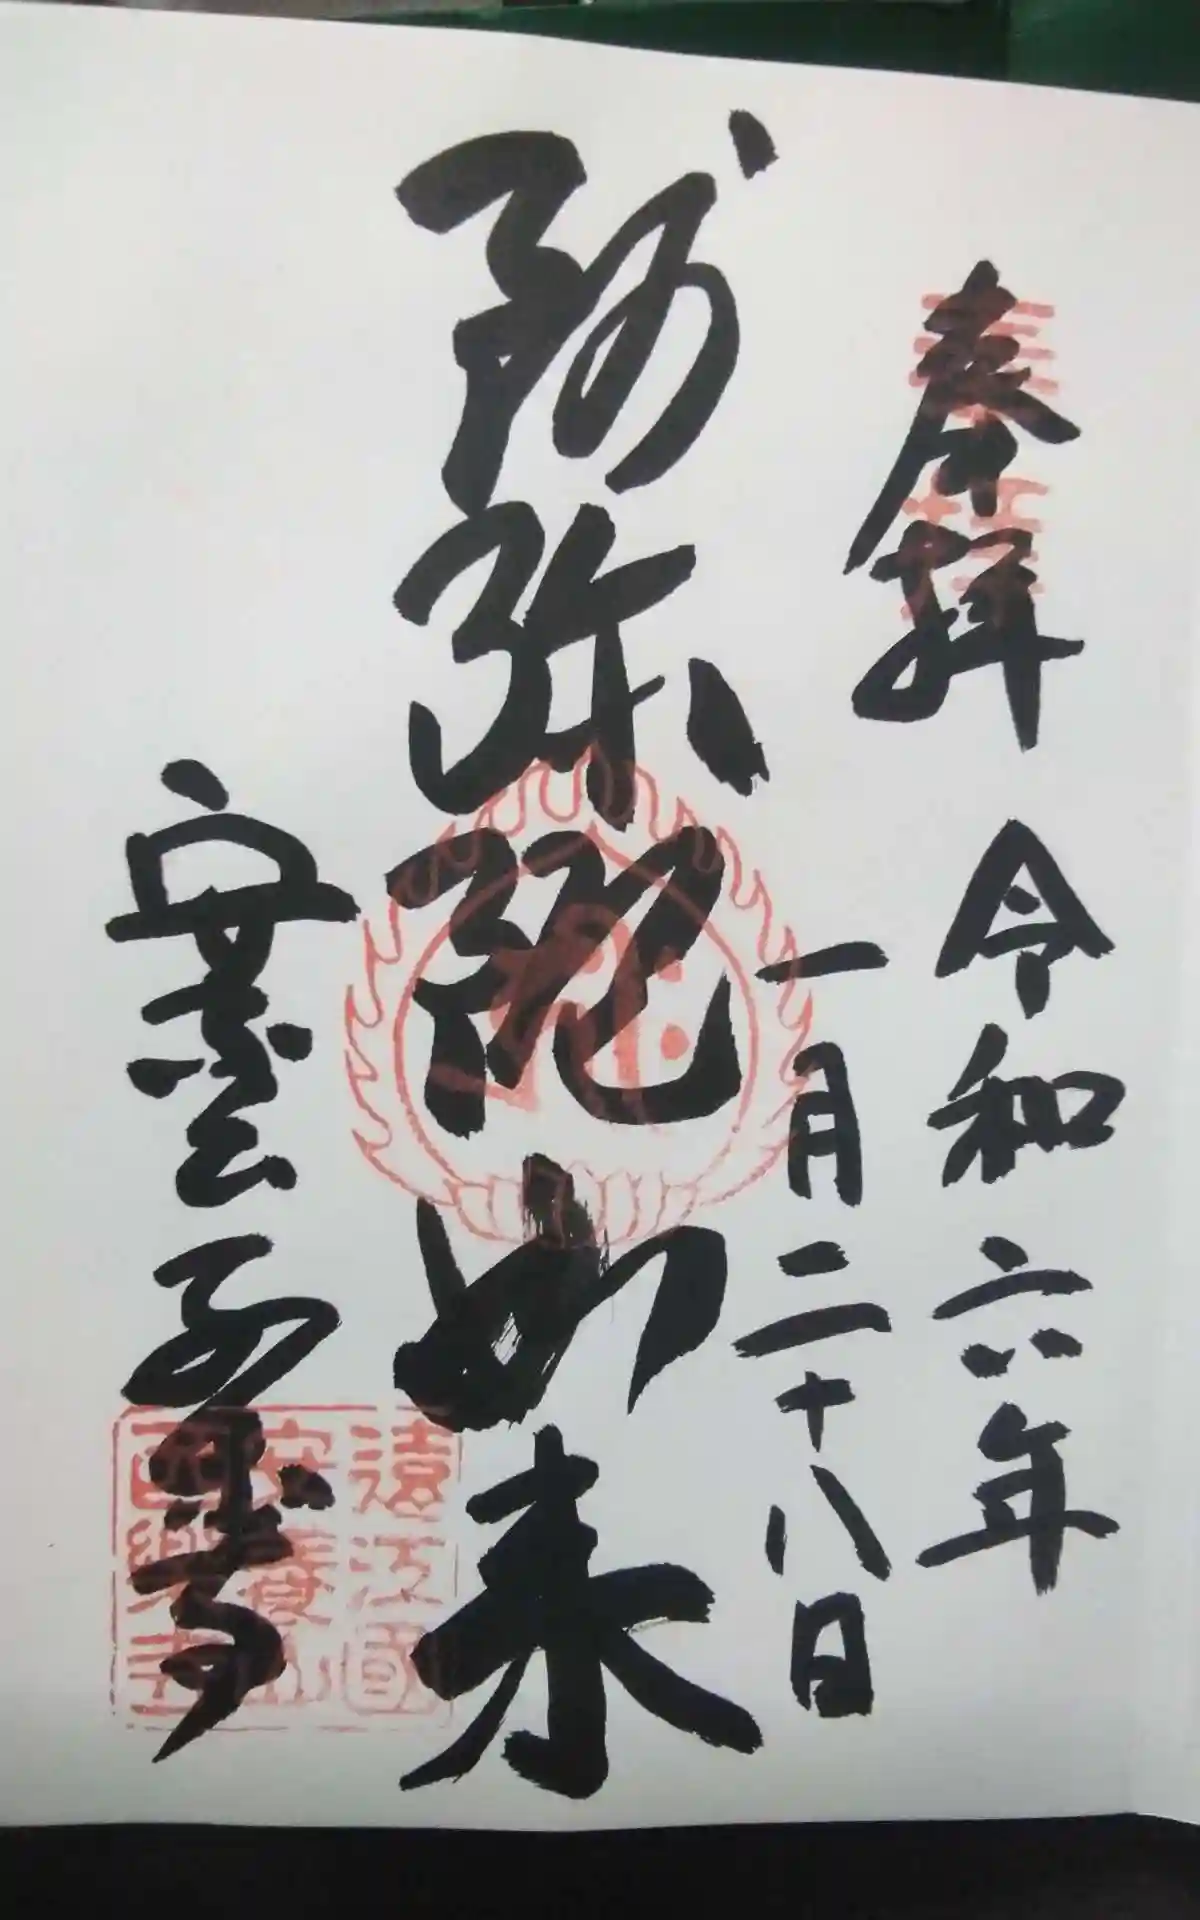 奉拝 令和六年
一月二十八日
阿弥陀如来
安養山西楽寺
遠江國
安養山
西樂寺